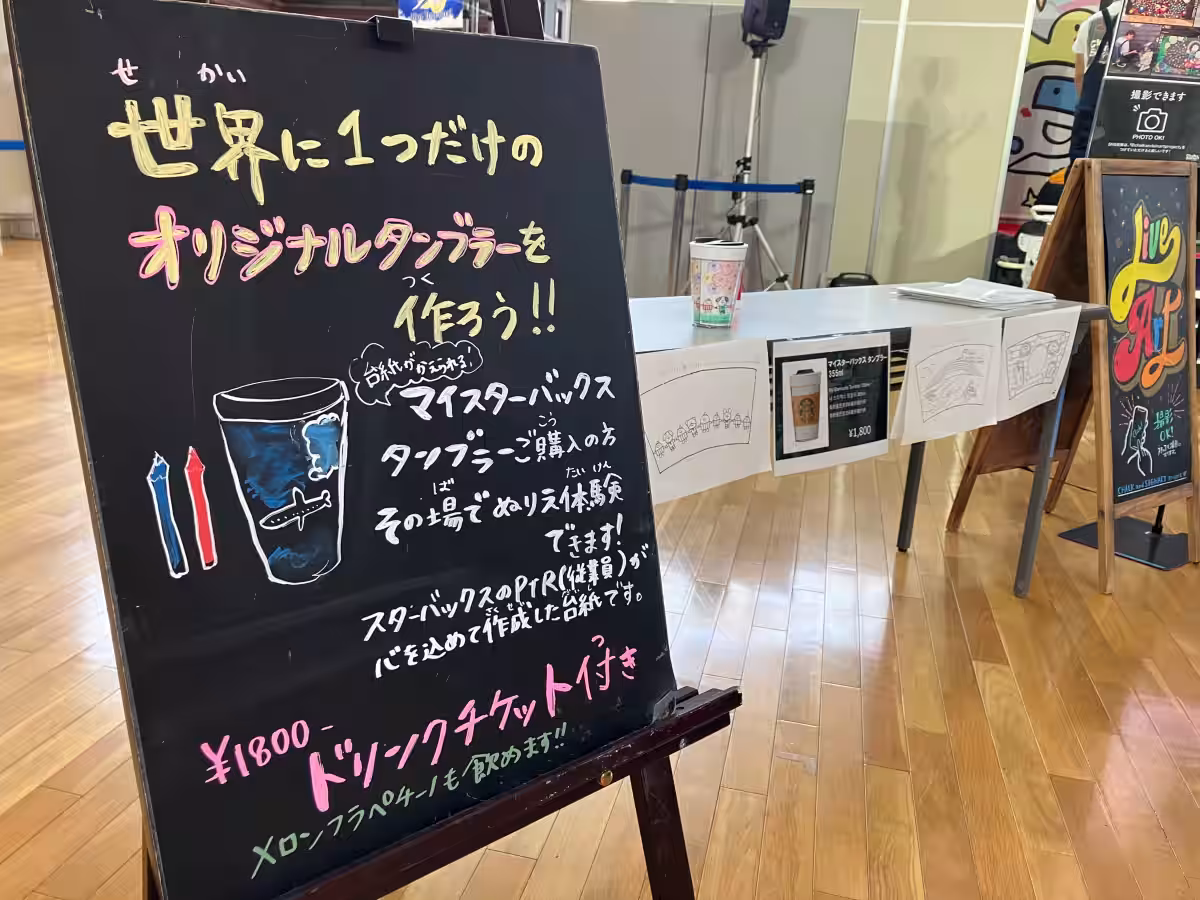 せ かい
世界に1つだけの
オリジナルタンブラーを
つく
作ろう!!
台紙がかえられる!
マイスターバックス
こう
タンブラーご購入の方
ば たいけん
その場でぬりえ体験
できます!
スターバックスのPTR(従業員)が
心を込めて作成した台紙です。
つ
¥1800-
ドリンクチケット付き
メロンフラペチーノも飲めます!!
マイスターバックス タンブラー
355ml
¥1,800
撮影できます
PHOTO OK!
Live
Art
撮影
OK!